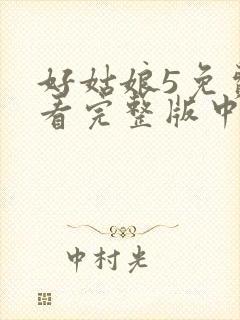 好姑娘5免
看完整版中
中村光